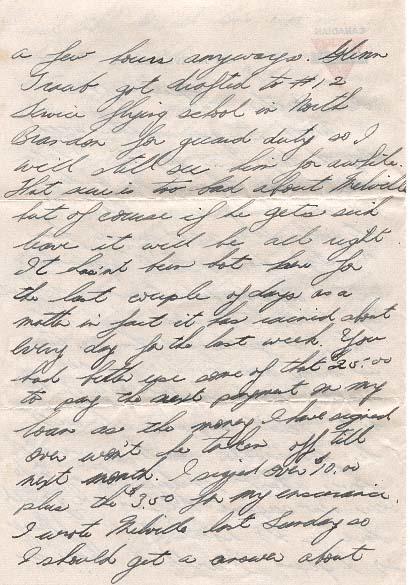 a few hours anyways. Glenn
Traub got drafted to #12
Service flying school in North
Brandon for guard duty so I
will still see him for awhile.
That sure is to bad about Melville
but of course if he gets sick
leave it will be all right.
It hasn't been hot here for
the last couple of days as a
matter in fact it has rained about
every day for the last week. You
had better use some of that $25.00
to pay the next payment on my
loan as the money I have signed
over won't be taken off till
next month. I signed over $10.00
plus the $3.50 for my insurance.
I wrote Melville last Sunday so
I should get a answer about